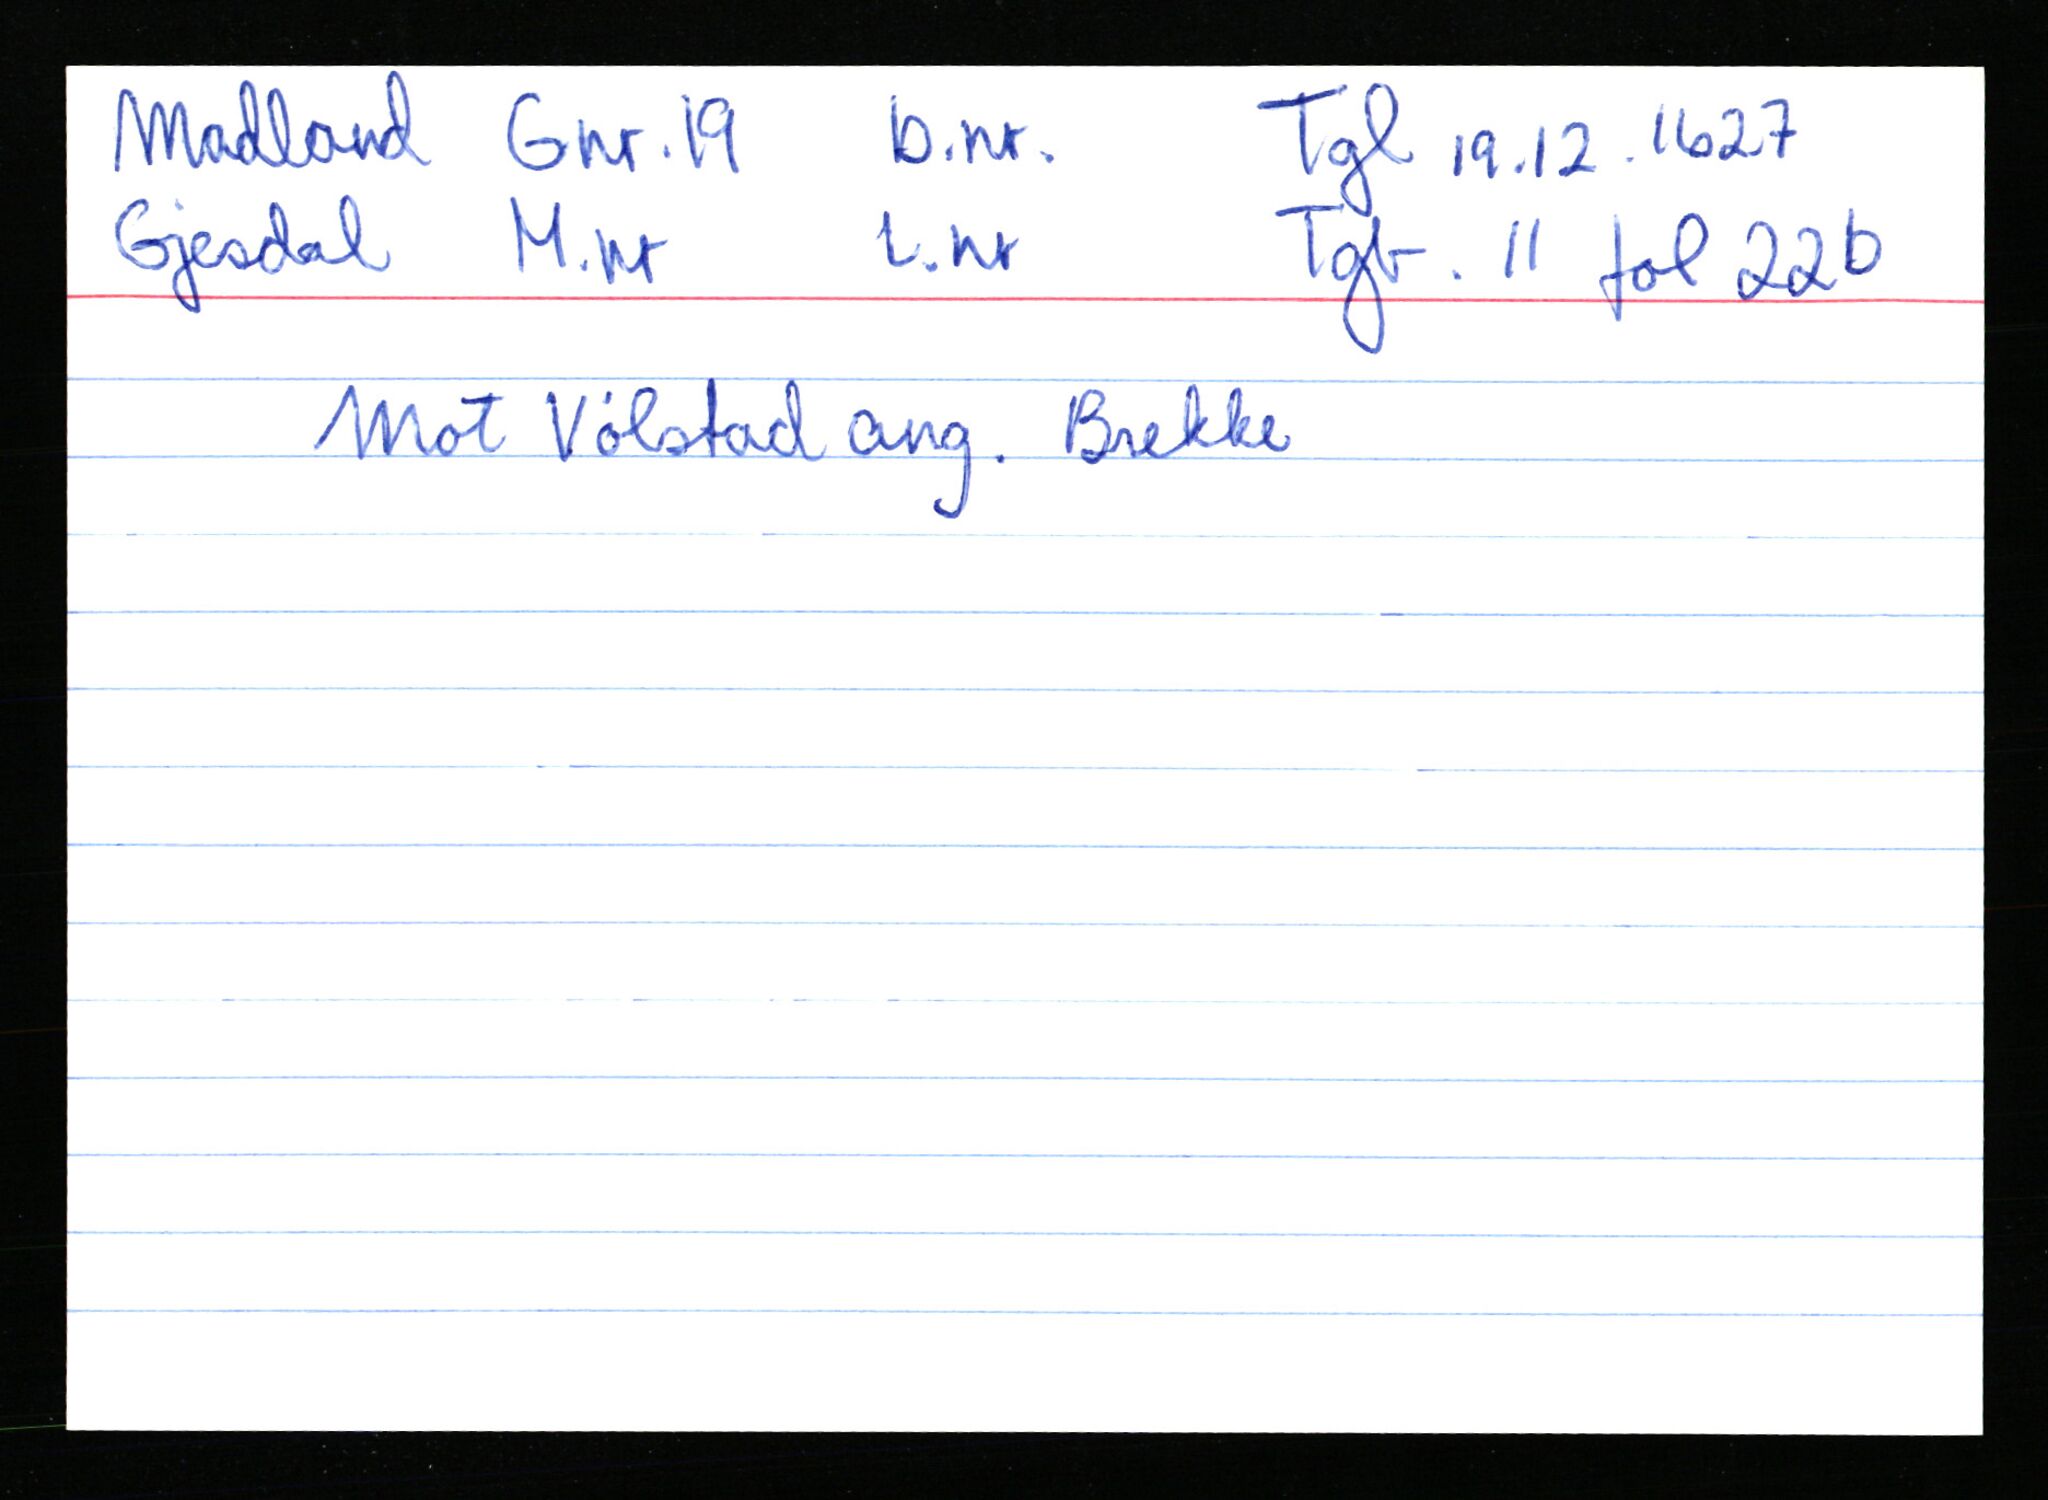 Madland Gnr. 19 b.nr. Tgl 19.12.1627
Gjesdal M.nr L.nr Tgb. 11 fol 22b
Mot Vølstad ang. Brekke